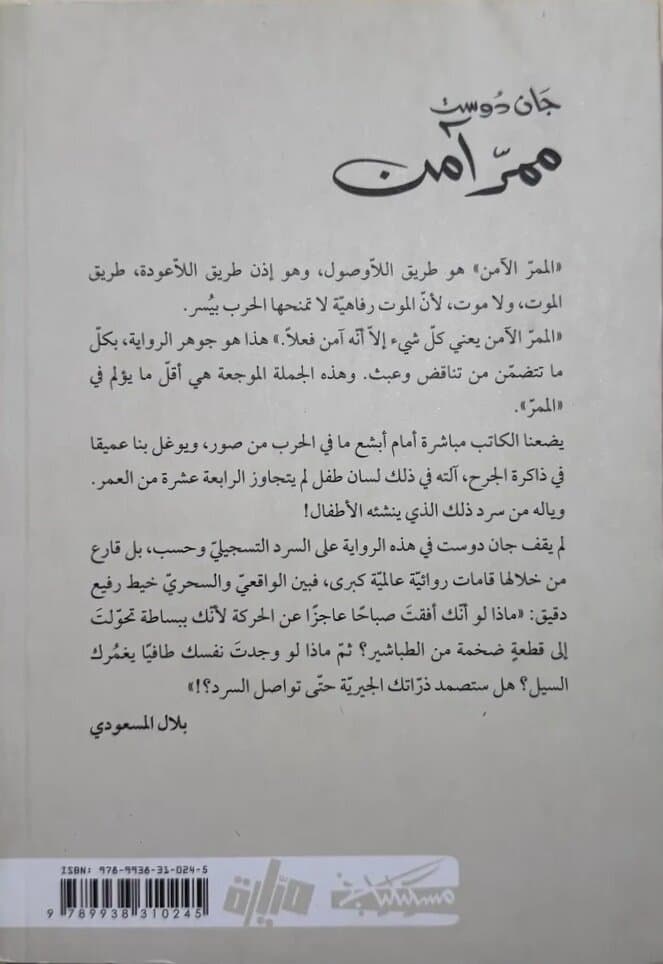 جَان دُوست
ممرّ آمن
«الممرّ الآمن» هو طريق اللاّوصول، وهو إذن طريق اللاّعودة، طريق
الموت، ولا موت، لأنّ الموت رفاهيّة لا تمنحها الحرب بيُسر.
«الممرّ الآمن يعني كلّ شيء إلاّ أنّه آمن فعلاً.» هذا هو جوهر الرواية، بكلّ
ما تتضمّن من تناقض وعبث. وهذه الجملة الموجعة هي أقلّ ما يؤلم في
«الممرّ».
يضعنا الكاتب مباشرة أمام أبشع ما في الحرب من صور، ويوغل بنا عميقا
في ذاكرة الجرح، آلته في ذلك لسان طفل لم يتجاوز الرابعة عشرة من العمر.
وياله من سرد ذلك الذي ينشئه الأطفال!
لم يقف جان دوست في هذه الرواية على السرد التسجيليّ وحسب، بل قارع
من خلالها قامات روائيّة عالميّة كبرى، فبين الواقعيّ والسحريّ خيط رفيع
دقيق: «ماذا لو أنّك أفقتَ صباحًا عاجزًا عن الحركة لأنّك ببساطة تحوّلتَ
إلى قطعةٍ ضخمة من الطباشير؟ ثمّ ماذا لو وجدتَ نفسك طافيًا يغمُرك
السيل؟ هل ستصمد ذرّاتك الجيريّة حتّى تواصل السرد؟!»
بلال المسعودي
ISBN: 978-9938-31-024-5
9 789938 310245